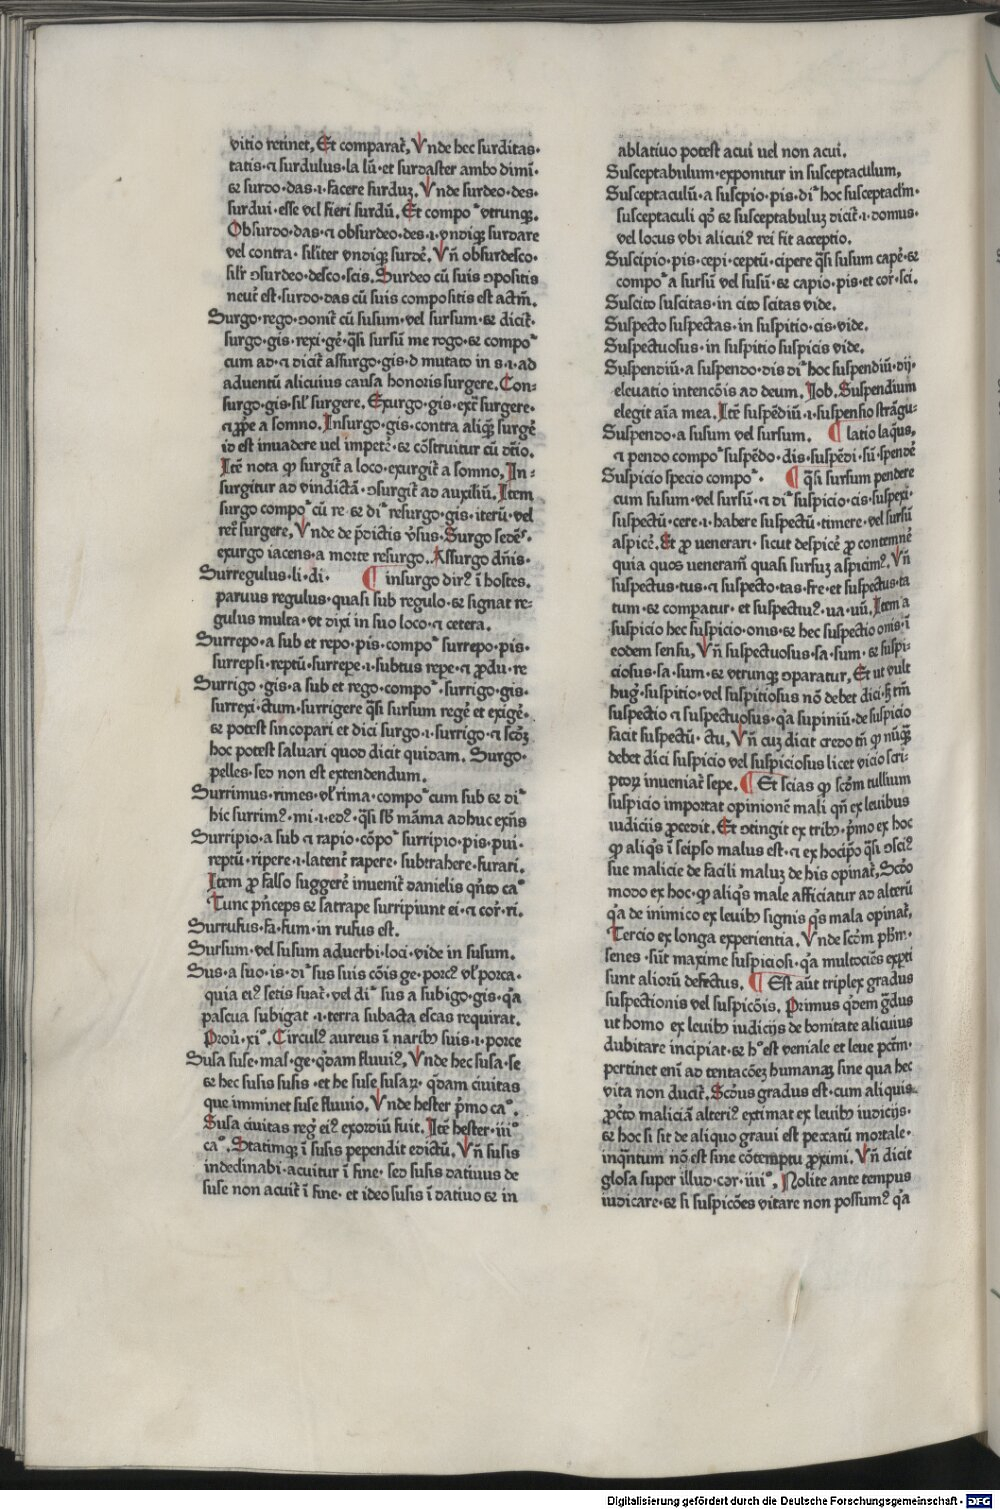 vitio retinet, Et comparat᷑, Vnde hec surditas·
tatis·⁊ surdulus·la lū·et surdaster ambo dimī·
⁊ surdo·das·i·facere surduꝫ. Vnde surdeo·des·
surdui·esse vel fieri surdū. Et compoʳ vtrunqꝫ.
Obsurdo·das·⁊ obsurdeo·des·i·vndiqꝫ surdare
vel contra· siliter vndiqꝫ surdē. Vn̄ obsurdesco·
silr̄ ꝯsurdeo·desco·scis. Surdeo cū suis ꝯpositis
neur᷑ est·surdo·das cū suis compositis est actm̄.
Surgo·rego·ꝯonit᷑ cū susum·vel sursum·⁊ dicit᷑·
surgo·gis·rexi·gē·q̄si sursū me rego·⁊ compoʳ
cum ad·⁊ dicit᷑ assurgo·gis·d mutato in s·i·ad
aduentū alicuius causa honoris surgere. Con⸗
surgo·gis·sil᷑ surgere. Exurgo·gis·ext᷑ surgere·
⁊ ꝓp̄e a somno. Insurgo·gis·contra aliqꝫ surgē
id est inuadere uel impetē·⁊ cōstruitur cū dt̄io.
Itē nota ꝙ surgit᷑ a loco·exurgit᷑ a somno, In⸗
surgitur ad vindictā·ꝯsurgit᷑ ad auxiliū. Item
surgo compoʳ cū re ⁊ diʳ resurgo·gis·iterū·vel
ret᷑ surgere, Vnde de p̄dictis v̄sus·Surgo sedēs·
exurgo iacens·a morte resurgo.. Assurgo dn̄is·
Surregulus·li·di· ¶ insurgo dirꝰ ī hostes.
paruus regulus·quasi sub regulo·⁊ signat re⸗
gulus multa·vt dixi in suo loco·⁊ cetera.
Surrepo·a sub et repo·pis·compoʳ surrepo·pis·
surrepsi·reptū·surrepe·i·subtus repe·⁊ ꝓdu·re
Surrigo·gis·a sub et rego·compoʳ·surrigo·gis·
surrexi·ctum·surrigere q̄si sursum regē et exigē·
⁊ potest sincopari et dici surgo·i·surrigo·⁊ scd̄ꝫ
hoc potest saluari quod dicit quidam. Surgo·
pelles·sed non est extendendum.
Surrimus·rimes·vl᷑ rima·compoʳ cum sub ⁊ diʳ
hic surrimꝰ·mi·i·edꝰ·q̄si sb̄ māma adhuc exn̄s
Surripio·a sub ⁊ rapio·cōpoʳ surripio·pis·pui·
reptū·ripere·i·latent᷑ rapere·subtrahere·furari.
Item ꝓ falso suggerē inuenit᷑ danielis qn̄to caº
Tunc pn̄ceps ⁊ satrape surripiunt ei·⁊ cor̄·ri.
Surrufus·fa·fum·in rufus est.
Sursum·vel susum aduerbi·loci·vide in susum.
Sus·a suo·is·diʳ sus suis cōis ge·porcꝰ vl᷑ porca·
quia eiꝰ setis suat᷑·vel diʳ sus a subigo·gis·q̄a
pascua subigat·i·terra subacta escas requirat.
Prou᷑·xiº. Circulꝰ aureus ī naribꝰ suis·i·porce
Susa suse·mas·ge·q̄dam fluuiꝰ. Vnde hec susa·se
⁊ hec susis susis·et he suse susaꝝ·q̄dam ciuitas
que imminet suse fluuio. Vnde hester p̄mo caº.
Susa ciuitas reg᷑ eiꝰ exordiū fuit. Itē hester·iiiº
caº. Statimqꝫ ī susis pependit edictū. Vn̄ susis
indeclinabi·acuitur ī fine·sed susis datiuus de
suse non acuit᷑ ī fine·et ideo susis ī datiuo ⁊ in
ablatiuo potest acui uel non acui.
Susceptabulum·exponitur in susceptaculum,
Susceptaculū·a suscpio·pis·diʳ hoc susceptacl̄m·
susceptaculi qd̄ ⁊ susceptabuluꝫ dicit᷑·i·domus·
vel locus vbi alicuiꝰ rei fit acceptio.
Suscipio·pis·cepi·ceptū·cipere q̄si susum capē·⁊
compoʳ a sursū vel susū·⁊ capio·pis·et cor᷑·sci.
Suscito suscitas·in cito scitas vide.
Suspecto suspectas·in suspitio·cis·vide.
Suspectuosus·in suspitio suspicis vide.
Suspendiū·a suspendo·dis diʳ hoc suspendiū·dij·
eleuatio intencōis ad deum. Job. Suspendium
elegit aīa mea. Itē suspēdiū·i·suspensio strāgu⸗
Suspendo·a susum vel sursum. ¶ latio laq̄us,
⁊ pendo compoʳ suspēdo·dis·suspēdi·sū·spendē
Suspicio specio compoʳ· ¶ q̄si sursum pendere
cum susum·vel sursū·⁊ diʳ suspicio·cis·suspexi·
suspectū·cere·i·habere suspectū·timere·vel sursū
aspicē. Et ꝓ venerari·sicut despicē ꝓ contemnē
quia quos veneram᷑ quasi sursuꝫ aspicimꝰ. Vn̄
suspectus·tus·⁊ suspecto·tas·fre·et suspectus·ta
tum·⁊ compatur·et suspectiuꝰ·ua·uū. Item a
suspicio hec suspicio·onis·⁊ hec suspectio onis·ī
eodem sensu, Vn̄ suspectuosus·sa·sum·⁊ suspi⸗
ciosus·sa·sum·⁊ vtrunqꝫ ꝯparatur, Et ut vult
hug᷑·suspitio·vel suspitiosus nō debet dici·s᷑ tm̄
suspectio ⁊ suspectuosus·q̄a supiniū·de suspicio
facit suspectū·ctu, Vn̄ cuꝫ dicat credo tn̄ ꝙ nūq̄
debet dici suspicio vel suspiciosus licet vicio scri⸗
ptoꝝ inueniat᷑ sepe. ¶ Et scias ꝙ scd̄m tullium
suspicio importat opinionē mali qn̄ ex leuibus
iudicijs ꝓcedit. Et ꝯtingit ex tribꝰ·p̄mo ex hoc
ꝙ aliq̄s ī seipso malus est·⁊ ex hocip̄o q̄si ꝯsciꝰ
sue malicie de facili maluꝫ de his opinat᷑, Scd̄o
modo ex hoc·ꝙ aliq̄s male afficiatur ad alterū
q̄a de inimico ex leuibꝰ signis q̄s mala opinat᷑.
Tercio ex longa experientia. Vnde scd̄m ph̄m·
senes·sūt maxime suspiciosi·q̄a multociēs exꝑti
sunt alioꝝ defectus. ¶ Est aūt triplex gradus
suspectionis vel suspicōis. Primus q̄dem g̊dus
ut homo ex leuibꝰ iudicijs de bonitate alicuius
dubitare incipiat·⁊ hº est veniale et leue pctm̄·
pertinet enī ad tentacōeꝫ humanaꝫ sine qua hec
vita non ducit᷑. Scd̄us gradus est·cum aliquis
ꝓ c̄to maliciā alteriꝰ extimat ex leuibꝰ iudicijs·
⁊ hoc si sit de aliquo graui est peccatū mortale·
inq̄ntum nō est sine cōtemptu ꝓximi. Vn̄ dicit
glosa super illud·cor·iiiiº. Nolite ante tempus
iudicare·⁊ si suspicōes vitare non possumꝰ q̄a
Digitalisierung gefördert durch die Deutsche Forschungsgemeinschaft - DFG